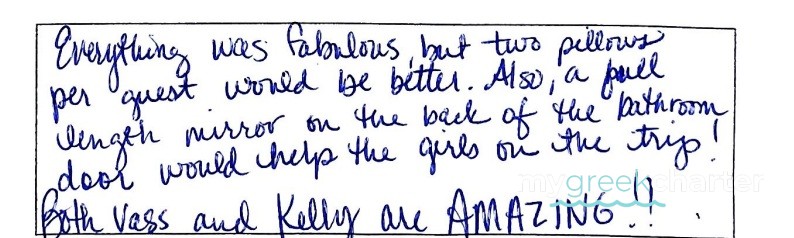 Everything was fabulous, but two pillows
per guest would be better. Also, a full
length mirror on the back of the bathroom
door would help the girls on the trip!
mygreekcharter
Both Vass and Kelly are AMAZING!!